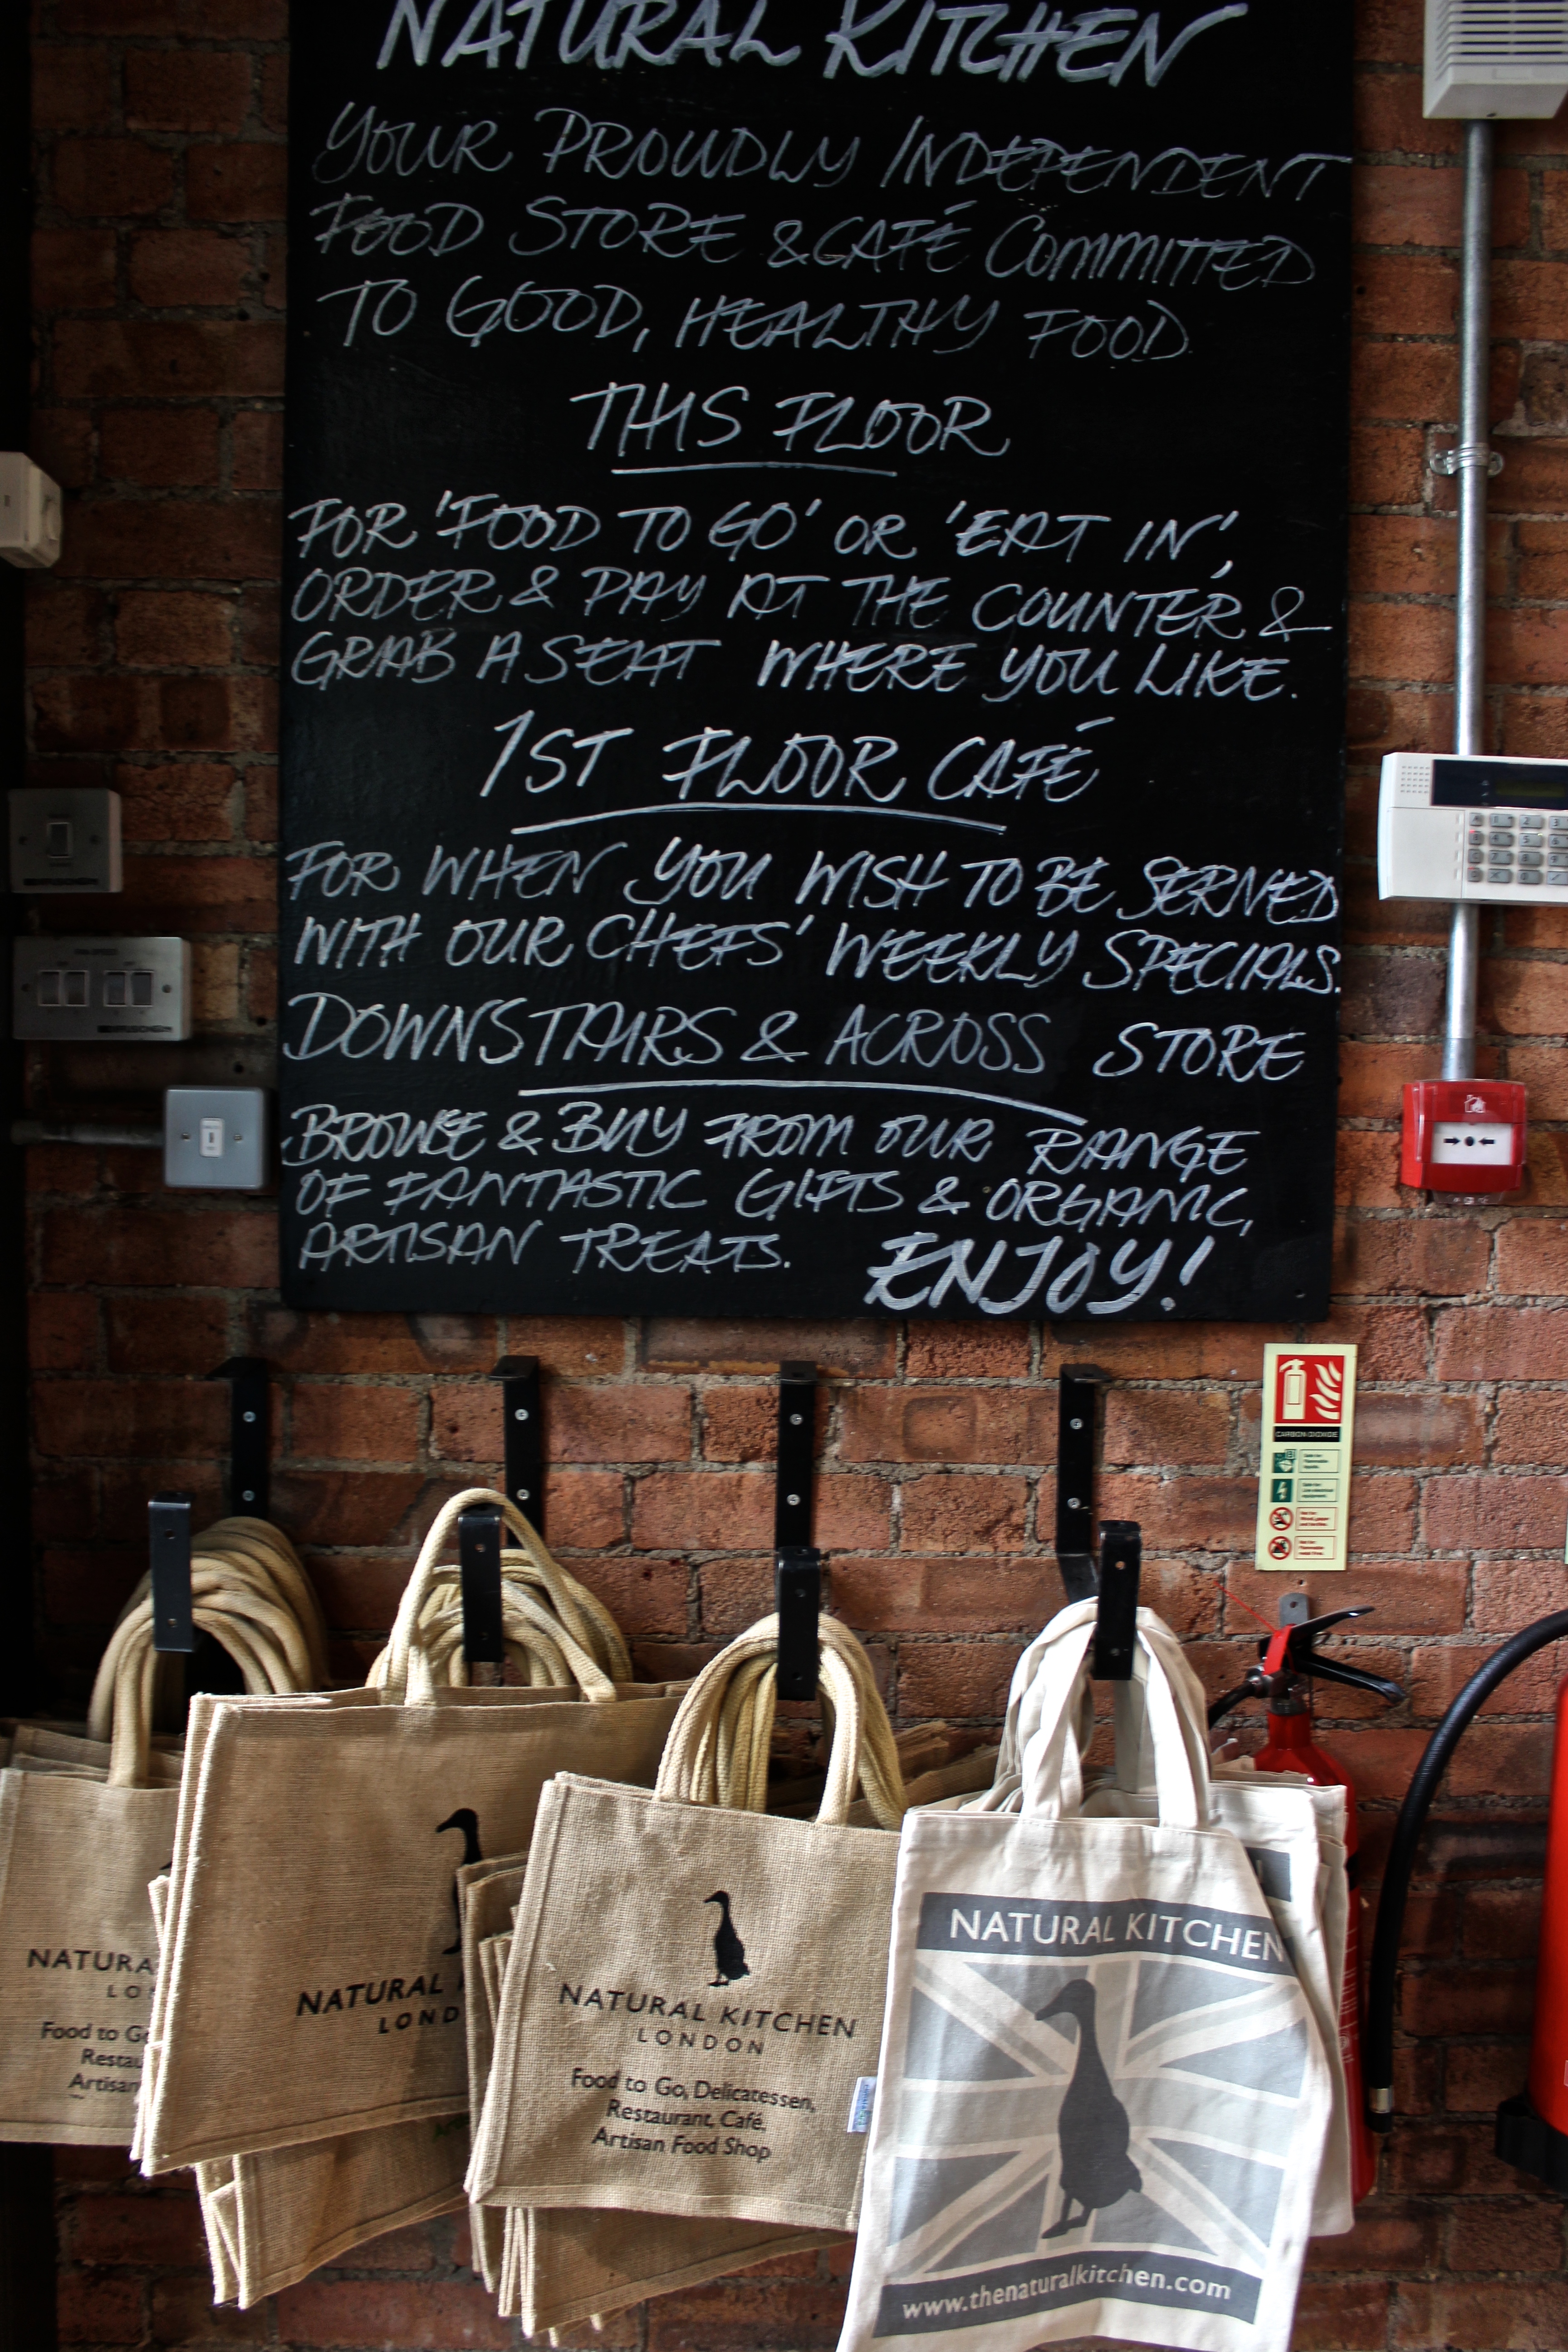 NATURAL KITCHEN
YOUR PROUDLY INDEPENDENT
FOOD STORE & CAFÉ COMMITTED
TO GOOD, HEALTHY FOOD.
THIS FLOOR
FOR 'FOOD TO GO' OR 'EAT IN',
ORDER & PAY AT THE COUNTER &
GRAB A SEAT WHERE YOU LIKE.
1ST FLOOR CAFÉ
FOR WHEN YOU WISH TO BE SERVED
WITH OUR CHEFS' WEEKLY SPECIALS.
DOWNSTAIRS & ACROSS STORE
BROWSE & BUY FROM OUR RANGE
OF FANTASTIC GIFTS & ORGANIC,
ARTISAN TREATS. ENJOY!
CARBON DIOXIDE
NATURA
LO
Food to G
Restau
Artisan
NATURAL
LOND
NATURAL KITCHEN
LONDON
Food to Go, Delicatessen,
Restaurant, Café,
Artisan Food Shop
NATURAL KITCHEN
www.thenaturalkitchen.com